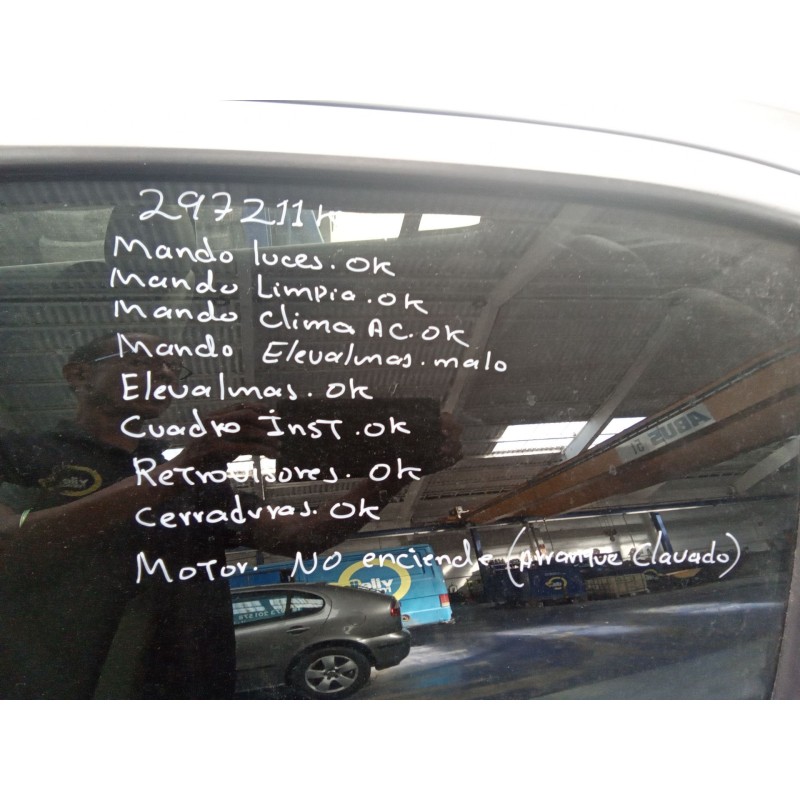 297211
Mando luces. OK
Mando Limpia. OK
Mando Clima AC. OK
Mando Elevalunas. malo
Elevalunas. OK
Cuadro InsT. OK
Retrovisores. OK
Cerraduras. OK
Motor. NO enciende (Arranque Clavado)
ABUS 5t